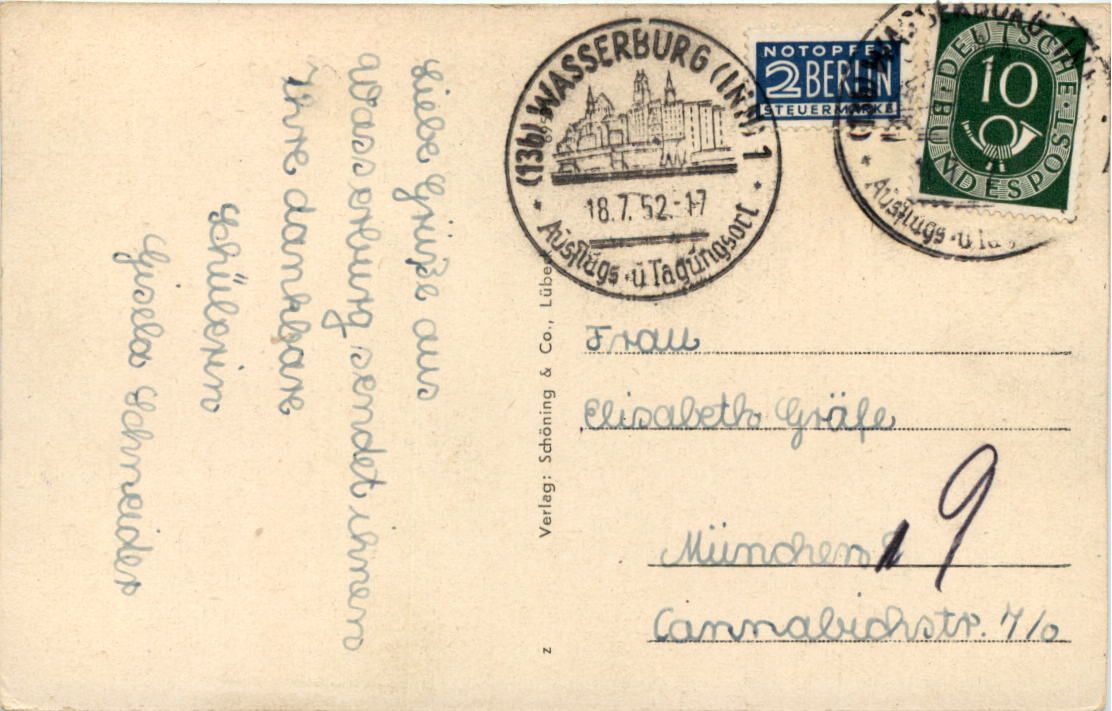 Liebe Grüße aus
Wasserburg sendet ihnen
Ihre dankbare
Schülerin
Gisela Schneider
Verlag: Schöning & Co., Lübe
z
(13b) WASSERBURG (INN) 1
18.7.52.-17
* Ausflugs- u Tagungsort *
NOTOPFER
2 BERLIN
STEUERMARKE
DEUTSCHE
BUNDESPOST
10
WASSERBURG (INN
* Ausflugs- u Ta
Frau
Elisabeth Gräfe
München
9
Cannabichstr. 7/0